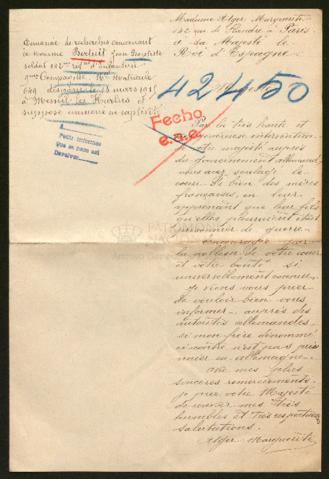 Madame Alger Marguerite
142 rue de Flandre à Paris
à Sa Majesté le
Roi d'Espagne
Demande de recherches concernant
le nommé Bertect Jean Baptiste
soldat 102me régt d'Infanterie
9me Compagnie Nro Matricule
disparu le 8 mars 1915
à Mesnil les Hurlus et
supposé emmené en captivité
42450
Fecho
Pedir informes
que se pasa así
Par la très haute et
intervention
de votre majesté auprès
du gouvernement allemand
vous avez soulagé le
coeur de bien des mères
françaises, en leur
apprenant que leur fils
qu'elles pleuraient était
prisonnier de guerre.
par
la noblesse de votre coeur
et votre bonté si
universellement connue
je viens vous prier
de vouloir bien vous
informer auprès des
autorités allemandes
si mon père dénommé
ci-contre n'est pas prisonnier
en allemagne.
Avec mes plus
sincères remerciements
je prie votre Majesté
de recevoir mes très
humbles et très respectueuses
salutations.
Alger Marguerite